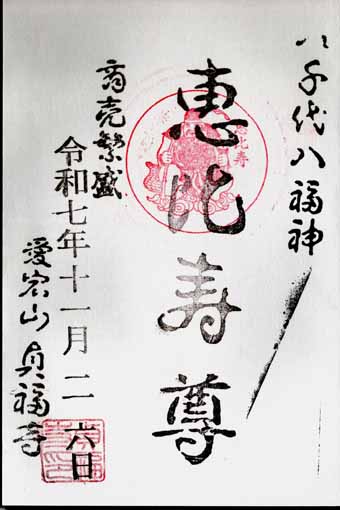 八千代八福神
恵比寿尊
商売繁盛
令和七年十一月二六日
愛宕山 貞福寺